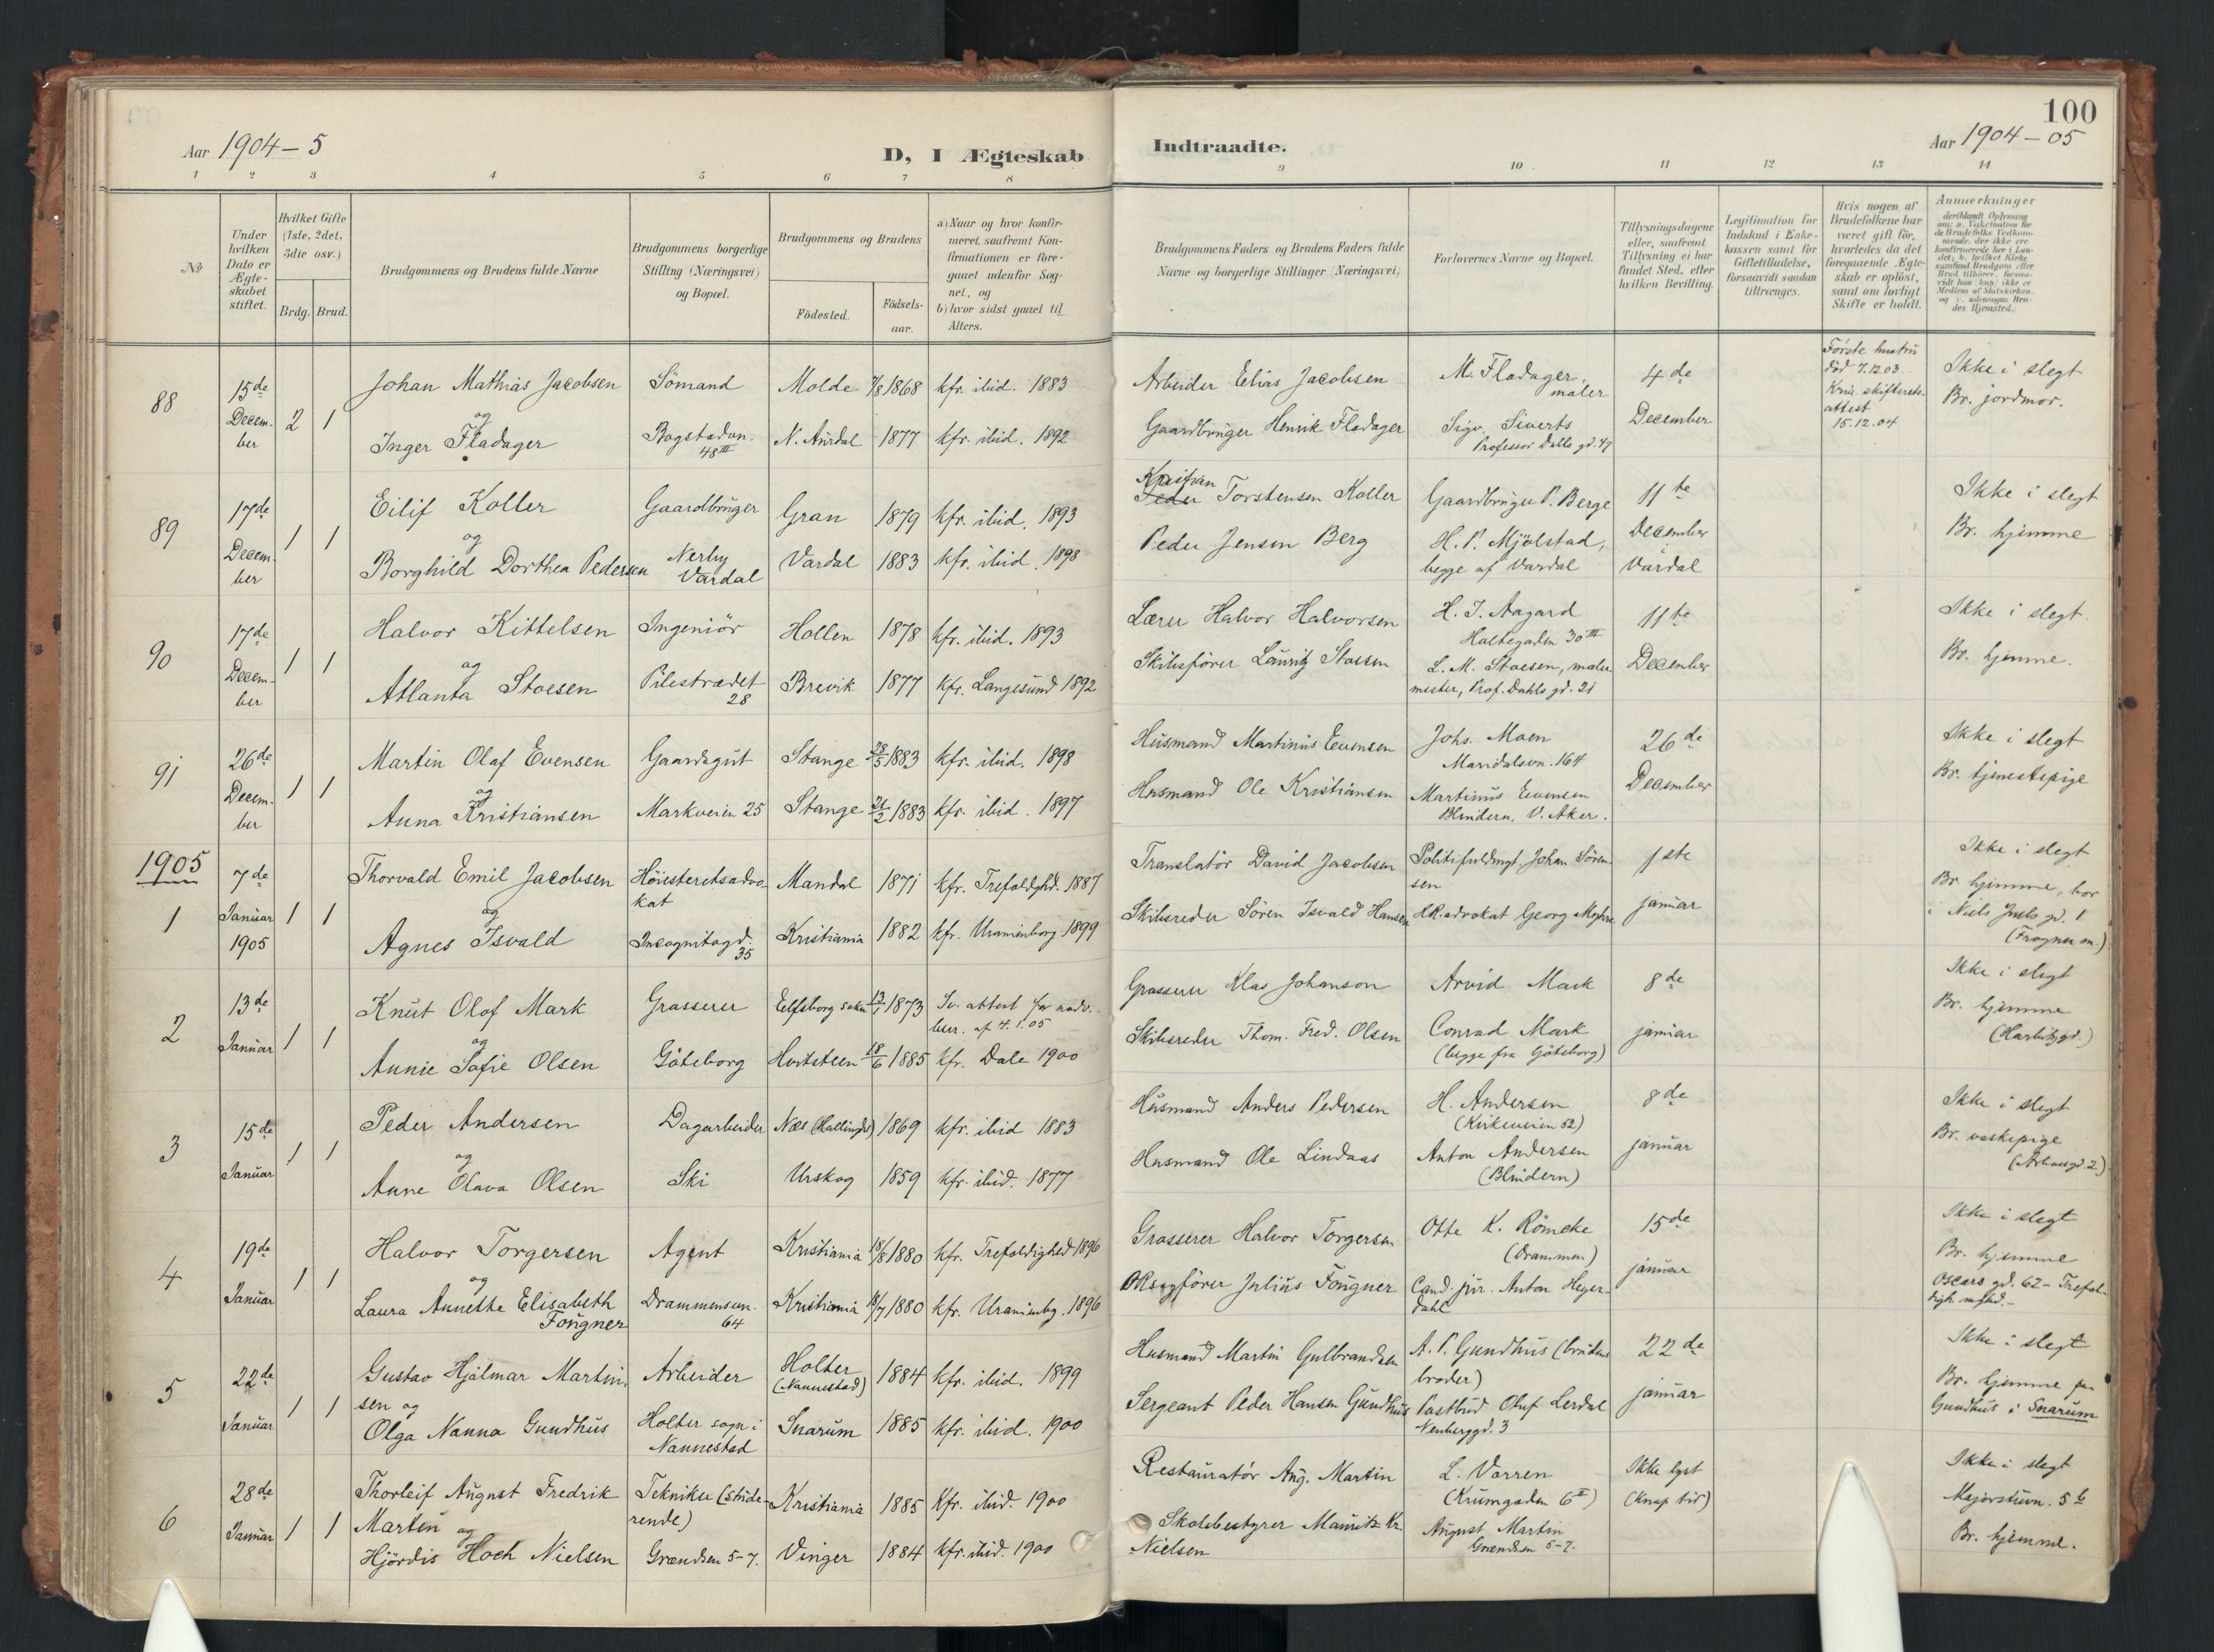 100
Aar 1904-5
D, I Ægteskab
Indtraadte.
Aar 1904-05
1 2 3 4 5 6 7 8 9 10 11 12 13 14
No
Under hvilken Dato er Ægteskabet stiftet.
Hvilket Gifte (1ste, 2det, 3die osv.)
Brdg. Brud.
Brudgommens og Brudens fulde Navne
Brudgommens borgerlige Stilling (Næringsvei) og Bopæl.
Brudgommens og Brudens
Födested.
Födsels-aar.
a) Naar og hvor konfir-
meret, saafremt Kon-
firmationen er fore-
gaaet udenfor Sog-
net, og
b) hvor sidst gaaet til
Alters.
Brudgommens Faders og Brudens Faders fulde
Navne og borgerlige Stillinger (Næringsvei)
Forlovernes Navne og Bopæl.
Tillysningsdagene
eller, saafremt
Tillysning ei har
fundet Sted, efter
hvilken Bevilling.
Legitimation for
Indskud i Enke-
kassen samt for
Giftetilladelse,
forsaavidt saadan
tiltrænges.
Hvis nogen af
Brudefolkene har
været gift för,
hvorledes da det
foregaaende Ægte-
skab er oplöst,
samt om lovligt
Skifte er holdt.
Anmærkninger
88
15de
Decem-
ber
2 1
Johan Mathias Jacobsen
og
Inger Fladager
Sömand
Bogstadvn.
48 III
Molde 7/8 1868 kfr. ibid. 1883
N. Aurdal 1877 kfr. ibid. 1892
Arbeider Elias Jacobsen
Gaardbruger Henrik Fladager
M. Fladager,
maler
Sigv. Siverts
Professor Dahls gd. 47
4de
December
Første hustru
død 7.12.03.
Kria. skifterets-
attest
15.12.04
Ikke i slegt
Br. jordmor.
89
17de
Decem-
ber
1 1
Eilif Koller
og
Borghild Dorthea Pedersen
Gaardbruger
Nerby
Vardal
Gran 1879 kfr. ibid. 1893
Vardal 1883 kfr. ibid. 1898
Kristian
Peder Torstensen Koller
Peder Jensen Berg
Gaardbruger P. Berge
H. P. Mjölstad,
begge af Vardal
11te
December
Vardal
Ikke i slegt
Br. hjemme
90
17de
Decem-
ber
1 1
Halvor Kittelsen
og
Atlanta Stoesen
Ingeniör
Pilestrædet
28
Hollen 1878 kfr. ibid. 1893
Brevik 1877 kfr. Langesund 1892
Lærer Halvor Halvorsen
Skibsfører Lauritz Stoesen
H. J. Aagard
Holtegaden 30 III
L. M. Stoesen, maler
mester, Prof. Dahls gd. 21
11te
December
Ikke i slegt.
Br. hjemme.
91
26de
Decem-
ber
1 1
Martin Olaf Evensen
og
Anna Kristiansen
Gaardsgut
Markveien 25
Stange 28/5 1883 kfr. ibid. 1898
Stange 21/2 1883 kfr. ibid. 1897
Husmand Martinus Evensen
Husmand Ole Kristiansen
Johs. Moen
Maridalsvn. 164
Martinus Evensen
Blindern, V. Aker.
26de
December
Ikke i slegt
Br. tjenestepige
1905
1
7de
Januar
1905
1 1
Thorvald Emil Jacobsen
og
Agnes Isvald
Høiesteretsadvo-
kat
Incognitogd.
35
Mandal 1871 kfr. Trefoldghd. 1887
Kristiania 1882 kfr. Uranienborg 1899
Translatör David Jacobsen
Skibsreder Sören Isvald Hansen
Politifuldmgt. Johan Sören-
sen
H.R.advokat Georg
1ste
januar
Ikke i slegt
Br. hjemme, bor
i Niels Juels gd. 1
(Frogner m.)
2
13de
Januar
1 1
Knut Olof Mark
og
Annie Sofie Olsen
Grosserer
Göteborg
Elfsborg sokn 13/1 1873 Sv. attest for nadv.
ber. af 4.1.05
Hvitsteen 18/6 1885 kfr. Dale 1900
Grosserer Klas Johanson
Skibsreder Thom. Fred. Olsen
Arvid Mark
Conrad Mark
(begge fra Göteborg)
8de
januar
Ikke i slegt
Br. hjemme
3
15de
Januar
1 1
Peder Andersen
og
Anne Olava Olsen
Dagarbeider
Ski
Næs (Hallingd.) 1869 kfr. ibid 1883
Urskog 1859 kfr. ibid. 1877
Husmand Anders Pedersen
Husmand Ole Lindaas
H. Andersen
(Kirkeveien 52)
Anton Andersen
(Blindern)
8de
januar
Ikke i slegt
Br. vaskepige
4
19de
Januar
1 1
Halvor Torgersen
og
Laura Annethe Elisabeth
Fougner
Agent
Drammensvn.
64
Kristiania 18/8 1880 kfr. Trefoldighed 1896
Kristiania 18/7 1880 kfr. Uranienbg. 1896
Grosserer Halvor Torgersen
ORsagfører Julius Fougner
Otto K. Römcke
(Drammen)
Cand. jur. Anton Heyer-
dahl
15de
januar
Ikke i slegt
Br. hjemme
Oscars gd. 62 - Trefol-
digh. mghd.-
5
22de
Januar
1 1
Gustav Hjalmar Martin-
sen og
Olga Nanna Gundhus
Arbeider
Holter sogn i
Nannestad
Holter
(Nannestad) 1884 kfr. ibid. 1899
Snarum 1885 kfr. ibid. 1900
Husmand Martin Gulbrandsen
Sergeant Peder Hansen Gundhus
A. P. Gundhus (brudens
broder)
Postbud Oluf Lerdal
Neuberggd. 3
22de
januar
Ikke i slegt
Br. hjemme paa
Gundhus i Snarum
6
28de
Januar
1 1
Thorleif August Fredrik
Martin og
Hjördis Hoch Nielsen
Tekniker (stude-
rende)
Grændsen 5-7.
Kristiania 1885 kfr. ibid. 1900
Vinger 1884 kfr. ibid. 1900
Restauratör Aug. Martin
Skolebestyrer Mauritz Kr.
Nielsen
L. Vorren
(Krumgaden 6 II)
August Martin
Grændsen 5-7.
Ikke lyst
(knap tid)
Ikke i slegt
Majorstuvn. 5 b
Br. hjemme.